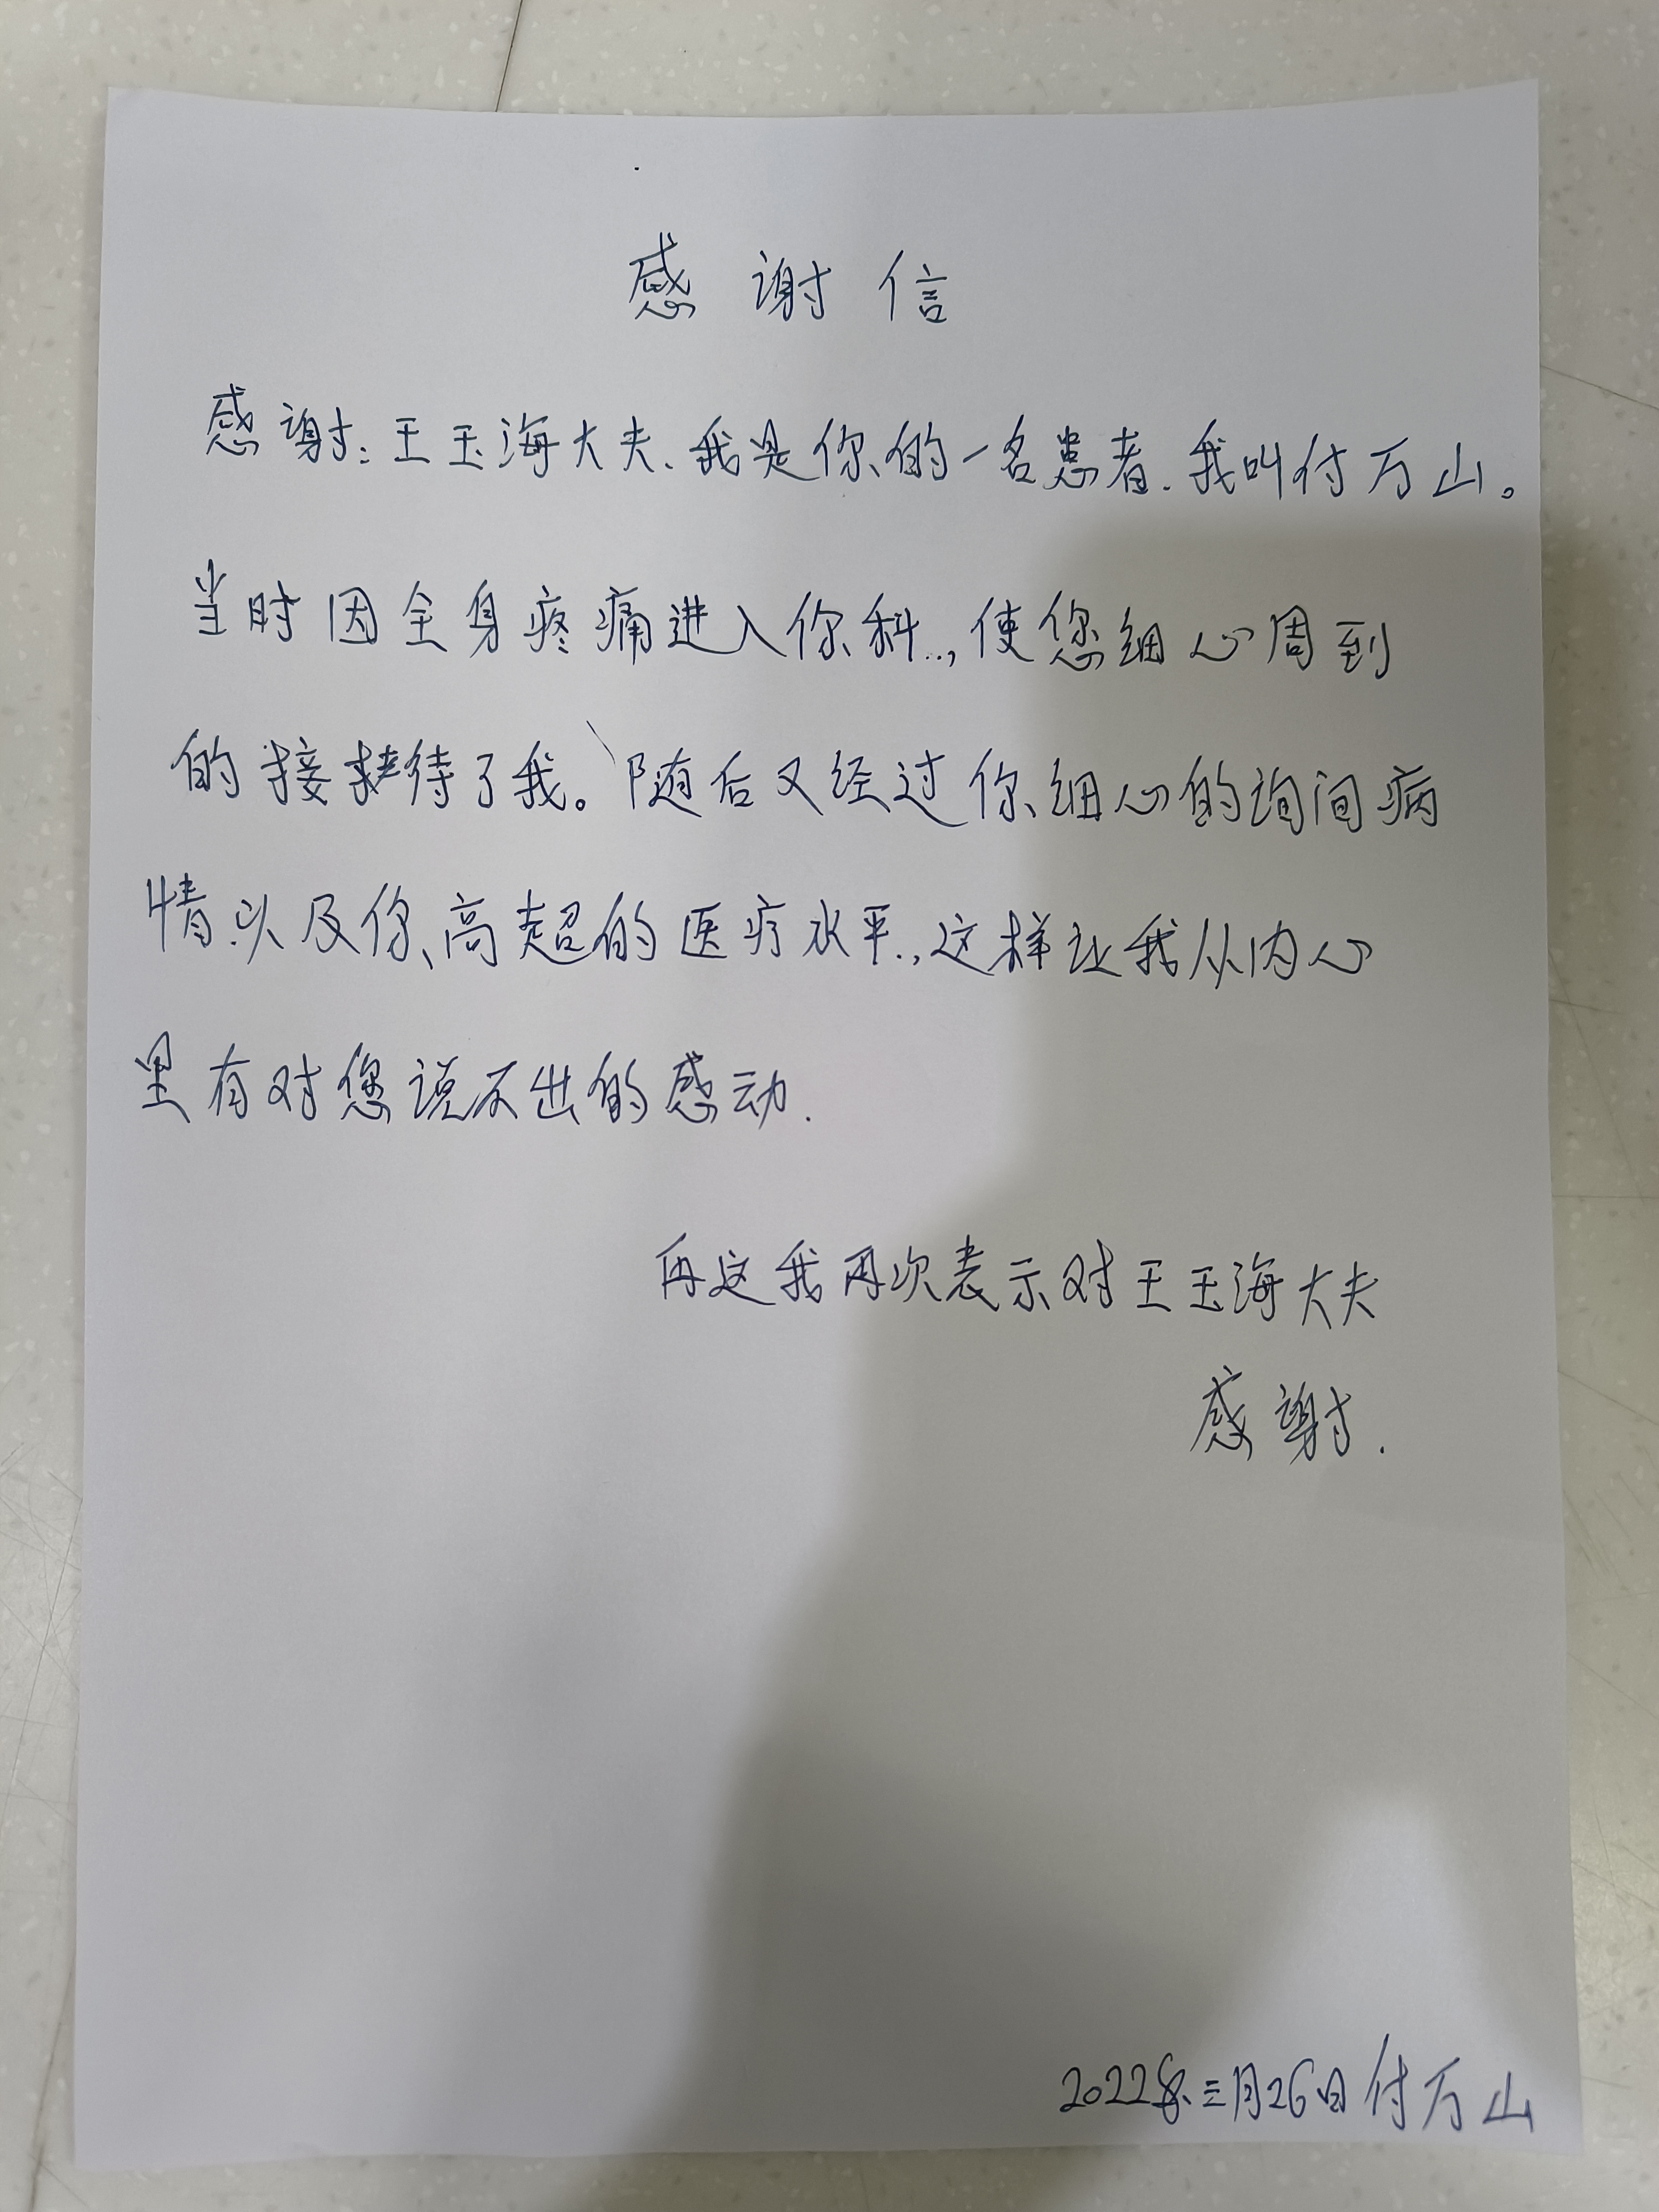 感谢信
感谢:王玉海大夫.我是你的一名患者.我叫付万山。
当时因全身疼痛进入你科..,使您细心周到
的接待了我。随后又经过你细心的询问病
情.以及你高超的医疗水平.,这样让我从内心
里有对您说不出的感动.
再这我再次表示对王玉海大夫
感谢.
2022年三月26日付万山